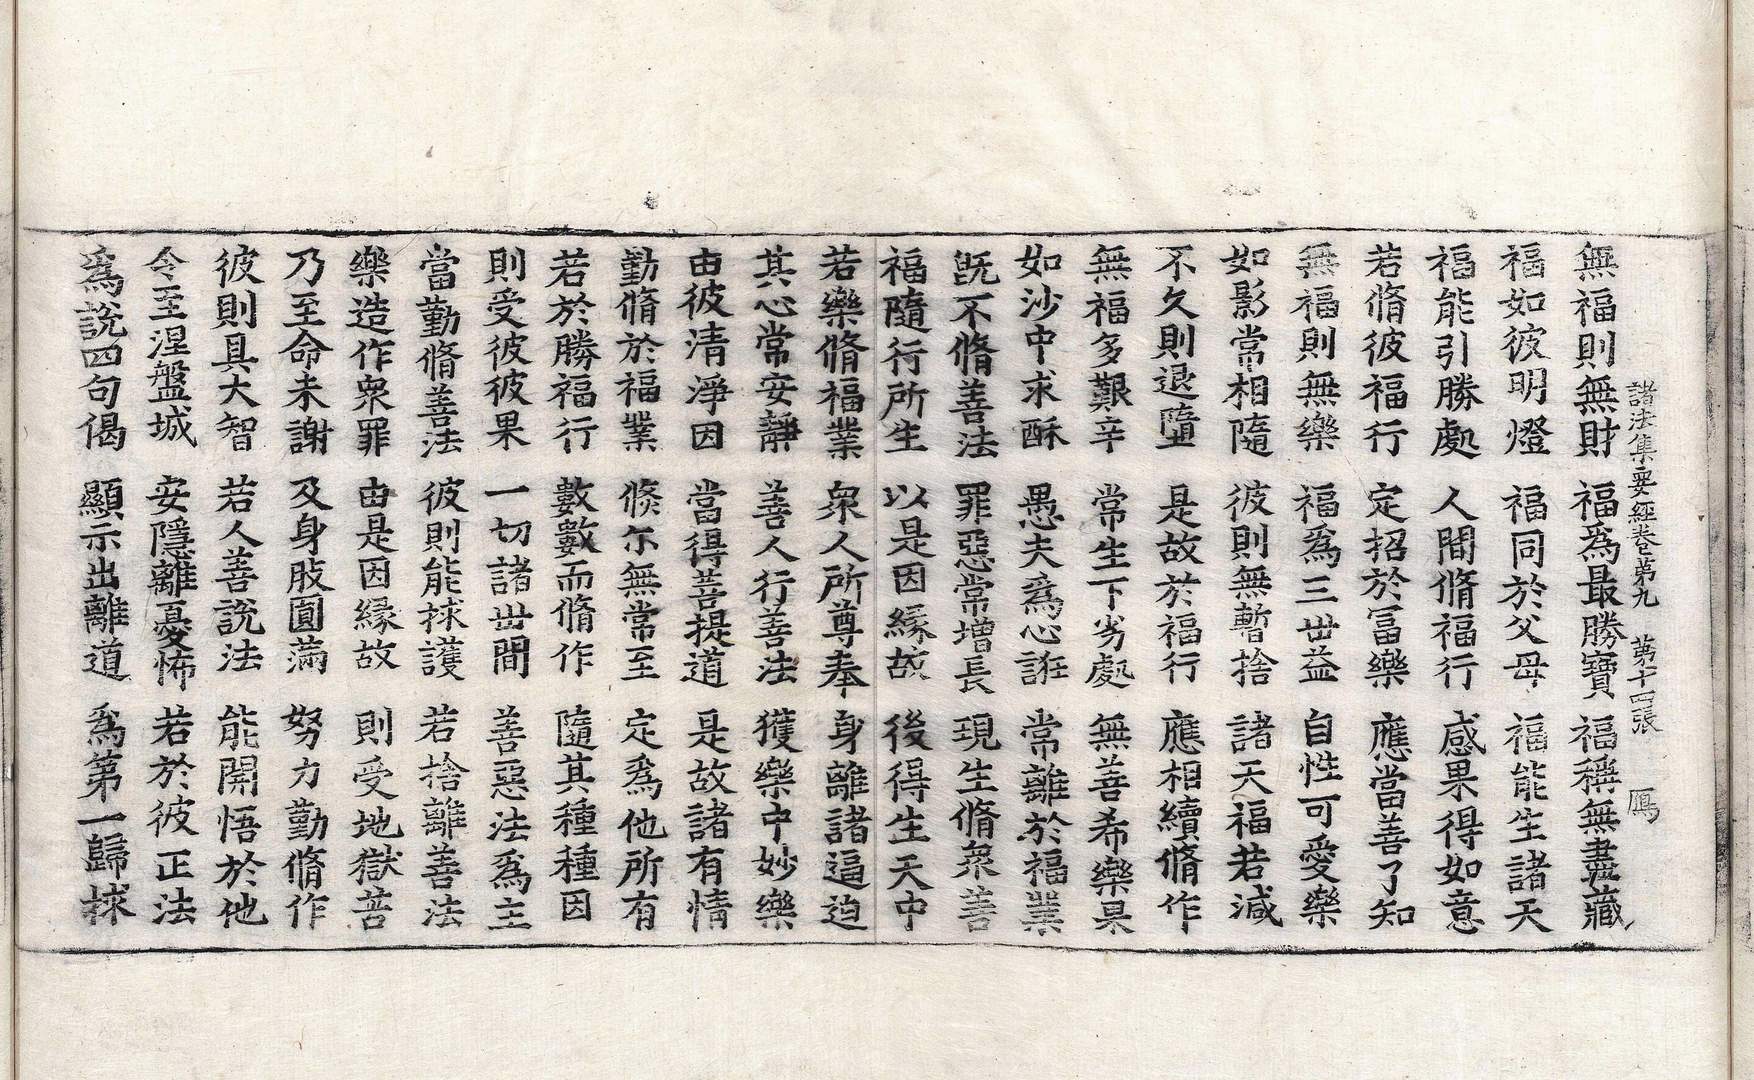 諸法集要經卷第九 第十四張 鴈
無福則無財 福爲最勝寶 福稱無盡藏
福如彼明燈 福同於父母 福能生諸天
福能引勝處 人間脩福行 感果得如意
若脩彼福行 定招於冨樂 應當善了知
無福則無樂 福爲三丗益 自性可愛樂
如影常相隨 彼則無暫捨 諸天福若減
不久則退墮 是故於福行 應相續脩作
無福多艱辛 常生下劣處 無善希樂果
如沙中求酥 愚夫爲心誑 常離於福業
旣不脩善法 罪惡常增長 現生脩衆善
福隨行所生 以是因縁故 後得生天中
若樂脩福業 衆人所尊奉 身離諸逼迫
其心常安靜 善人行善法 獲樂中妙樂
由彼清淨因 當得菩提道 是故諸有情
勤脩於福業 倐尓無常至 定爲他所有
若於勝福行 數數而脩作 隨其種種因
則受彼彼果 一切諸丗間 善惡法爲主
當勤脩善法 彼則能捄護 若捨離善法
樂造作衆罪 由是因縁故 則受地獄苦
乃至命未謝 及身肢圓滿 努力勤脩作
彼則具大智 若人善說法 能開悟於他
令至涅盤城 安隱離憂怖 若於彼正法
爲說四句偈 顯示出離道 爲第一歸捄